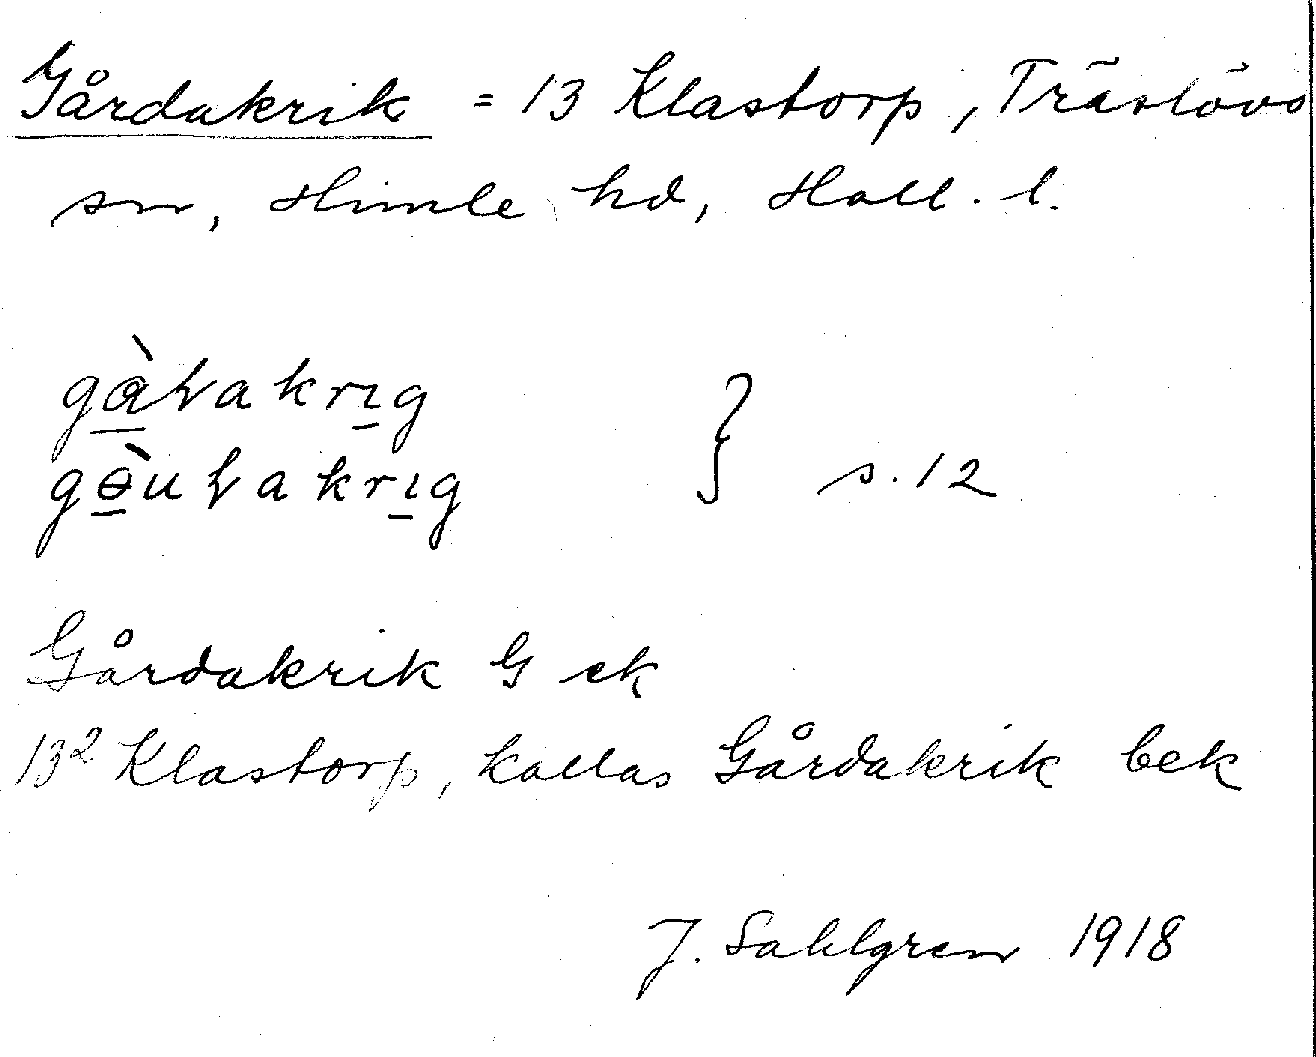 Gårdakrik = 13 Klastorp, Träslövs
sn, Himle hd, Hall. l.
gàⱶakrıg
gɵ̀uⱶakrıg } s. 12
Gårdakrik G ek
13² Klastorp, kallas Gårdakrik bek
J. Sahlgren 1918